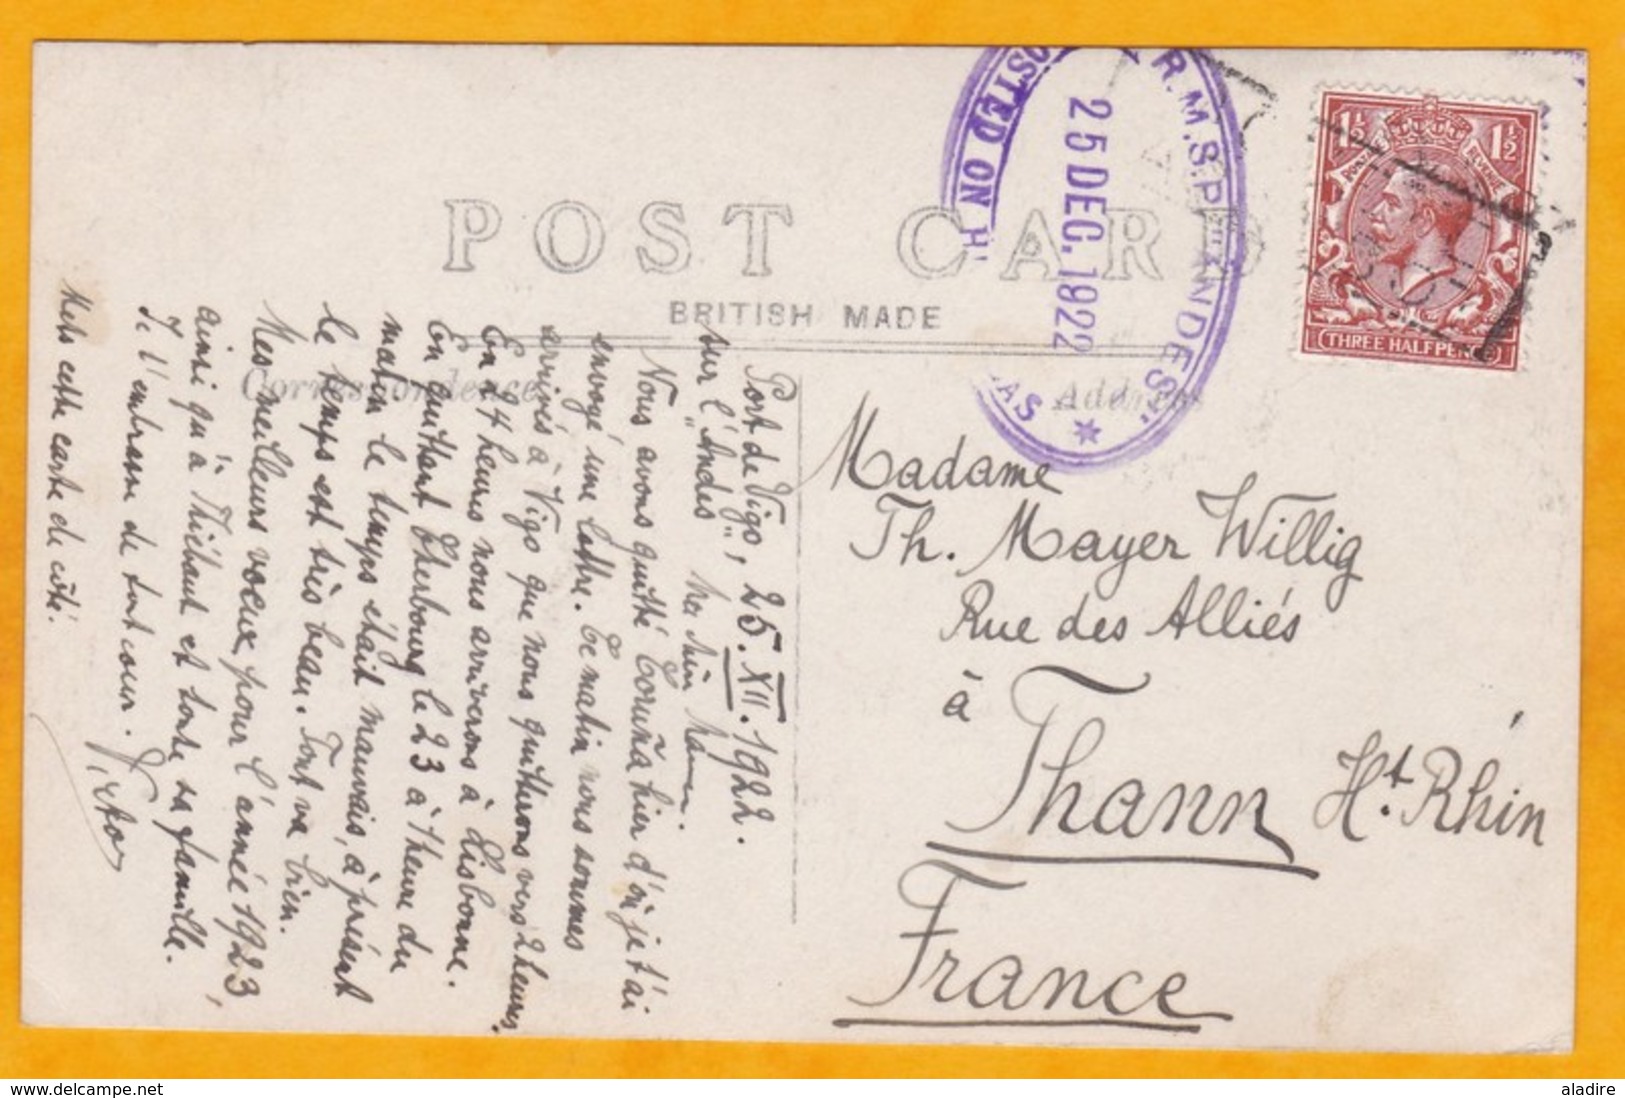 POST CARD
BRITISH MADE
Correspondence
Address
R.M.S.P. "ANDES"
POSTED ON H
25 DEC. 1922
AS
1½ 1½
POSTAGE REVENUE
THREE HALFPENCE
Port de Vigo, 25.XII.1922.
sur l'"Andes"
Nous avons quitté Coruña hier d'où je t'ai
envoyé une lettre. Ce matin nous sommes
arrivés à Vigo que nous quitterons vers 2 heures.
En 24 heures nous arriverons à Lisbonne.
En quittant Cherbourg le 23 à 1 heure du
matin le temps était mauvais, à présent
le temps est très beau. Tout va bien.
Mes meilleurs voeux pour l'année 1923,
ainsi qu'à Thiébaut et toute sa famille.
Je t'embrasse de tout coeur. Victor
Mets cette carte de côté.
Madame
Th. Mayer Willig
Rue des Alliés
à
Thann Ht. Rhin
France
aladire